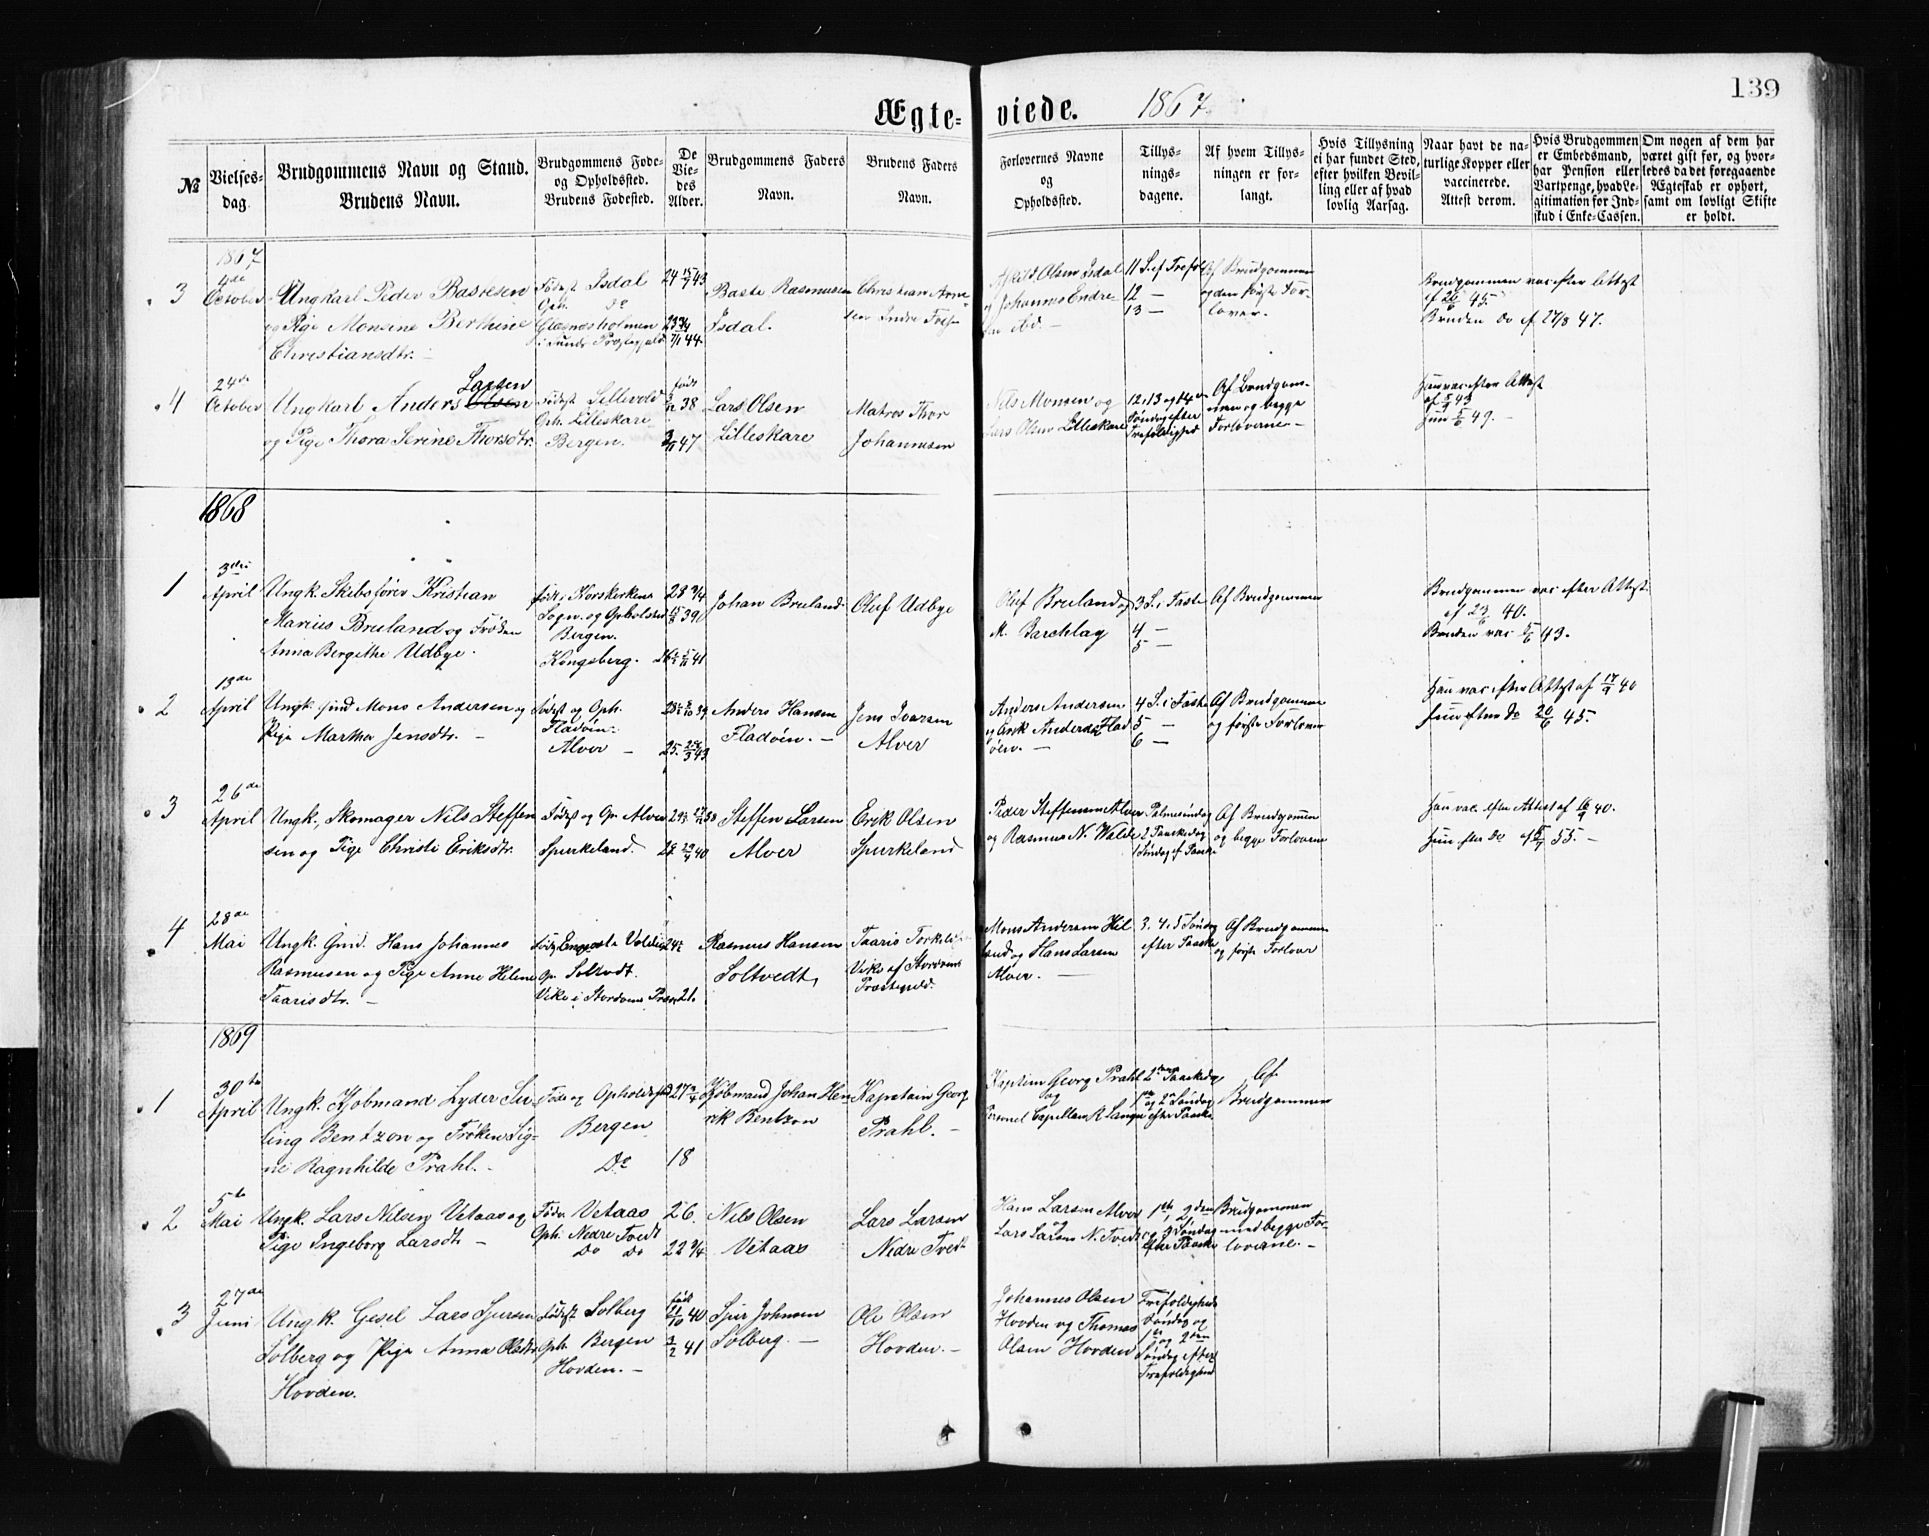 139
Ægte-
viede. 1867.
№
Vielses-
dag
Brudgommens Navn og Stand.
Brudens Navn.
Brudgommens Føde-
og Opholdssted.
Brudens Fødested.
De
Vie-
des
Alder.
Brudgommens Faders
Navn.
Brudens Faders
Navn.
Forlovernes Navne
og
Opholdssted.
Tillys-
nings-
dagene.
Af hvem Tillys-
ningen er for-
langt.
Hvis Tillysning
ei har fundet Sted,
efter hvilken Bevil-
ling eller af hvad
lovlig Aarsag.
Naar havt de na-
turlige Kopper eller
vaccinerede.
Attest derom.
Hvis Brudgommen
er Embedsmand,
har Pension eller
Vartpenge, hvad Le-
gitimation for Ind-
skud i Enke-Cassen.
Om nogen af dem har
været gift før, og hvor-
ledes da det foregaaende
Ægteskab er ophørt,
samt om lovligt Skifte
er holdt.
1867
3
4de
October
Ungkarl Peder Bastesen
og Pige Monsine Berthine
Christiansdtr. —
Fødest Isdal
Oph. do
Glesnæsholmen
i Sunds Præstegjeld
24 15/7 43
23 3/4
7/1 44
Baste Rasmussen
Isdal.
Christian Arne-
sen Indre
Olsen Isdal
og Johannes Endre-
sen ibd. —
11 S. ef Tref
12 —
13 —
Af Brudgommen
og den første For-
lover.
Brudgommen var efter Attest
af 26/6 45.
Bruden do af 27/8 47.
4
24de
October
Ungkarl Anders Olsen Larsen
og Pige Thora Serine Thorsdtr.
Fødest Lillevold
Oph. Lilleskare
Bergen.
født
38
47
Lars Olsen
Lilleskare
Matros Thor
Johannesen
Nils Monsen og
Lars Olsen Lilleskare
12, 13 og 14de
Søndag efter
Trefoldighed
Af Brudgom-
men og begge
Forloverne —
Han var efter Attest
af 5/9 43
Hun 5/6 49. —
1868
1
3die
April
Ungk. Skibsfører Kristian
Marius Bruland og Frøken
Anna Bergithe Udbye.
født i Korskerkens
Sogn og Opholdsted
Bergen.
Kongsberg.
28 3/4
39
41
Johan Bruland
Oluf Udbye
Oluf Bruland og
M. Barchlay
3 S. i Faste
4 —
5 —
Af Brudgommen
Brudgommen var efter Attest
af 23/6 40.
Bruden var 5/6 43.
2
13de
April
Ungk. Gmd Mons Andersen og
Pige Martha Jensdtr. —
Fødest og Oph.
Fladøen
Alver —
28
39
25
43
Anders Hansen
Fladøen. —
Jens Ivarsen
Alver
Anders Andersen
og Erik Andersen Flad
øen. —
4 S. i Faste
5 —
6 —
Af Brudgommen
og første Forlover
Han var efter Attest af 17/9 40
Hun efter do 20/6 45.
3
26de
April
Ungk. Skomager Nils Steffen
sen og Pige Christi Eriksdtr.
Fødest og Op. Alver
Spurkeland.
40
Steffen Larsen
Alver
Erik Olsen
Spurkeland
Peder Steffensen Alver
og Rasmus N. Walde
Palmesøndag
2 Paaskedag
1 Søndag ef. Paaske
Af Brudgommen
og begge Forloverne
Han vac. efter Attest af 16/9 40.
Hun efter do af 55. —
4
28de
Mai
Ungk. Gmd. Hans Johannes
Rasmussen og Pige Anne Helene
Taarisdtr. —
Op. Soltvedt.
Vike i Stordøens Præst
24
21.
Rasmus Hansen
Soltvedt,
Taaris Torkelsen
Vike af Stordøens
Præstegjeld.
Mons Andersen Hil
land og Hans Larsen
Alver. —
3. 4. 5 Søndag
efter Paaske
Af Brudgommen
og første Forlover
1869
1
30te
April
Ungk. Kjøbmand Lyder Sv-
ling Bentzon og Frøken Sig-
ne Ragnhilde Prahl. —
Føde og Opholdsted
Bergen
Do
27
18
Kjøbmand Johan Hen
rik Bentzon
Kaptain Georg
Prahl. —
Kaptein Georg Prahl
og
Personel Capellan R Lange
2den Paaskedag
1ste og 2n Søndag
efter Paaske
Af
Brudgommen
2
5te
Mai
Ungk. Lars Nilsen Vetaas og
Pige Ingeborg Larsdtr —
Føder Vetaas
Oph. Nedre Tvedt
Do Do
26.
22 3/4
Nils Olsen
Vetaas
Lars Larsen
Nedre Tvedt
Hans Larsen Alver
og
Lars Larsen N. Tvedt
1ste, 2den
og 3 Søndag
efter Paaske
Brudgommen
med begge For-
loverne. —
3
27de
Juni
Ungk. Gesel Lars Sjursen
Solberg og Pige Anna Olsdtr
Hovden.
Fødest Solberg
Oph. Bergen
Hovden. —
født
21/10 40
41
Sjur Johnsen
Solberg. —
Ole Olsen
Hovden. —
Johannes Olsen
Hovden og Thomas
Olsen Hovden
Trefoldigheds
Søndag og
1ste og 2den
Søndag efter
Trefoldighed